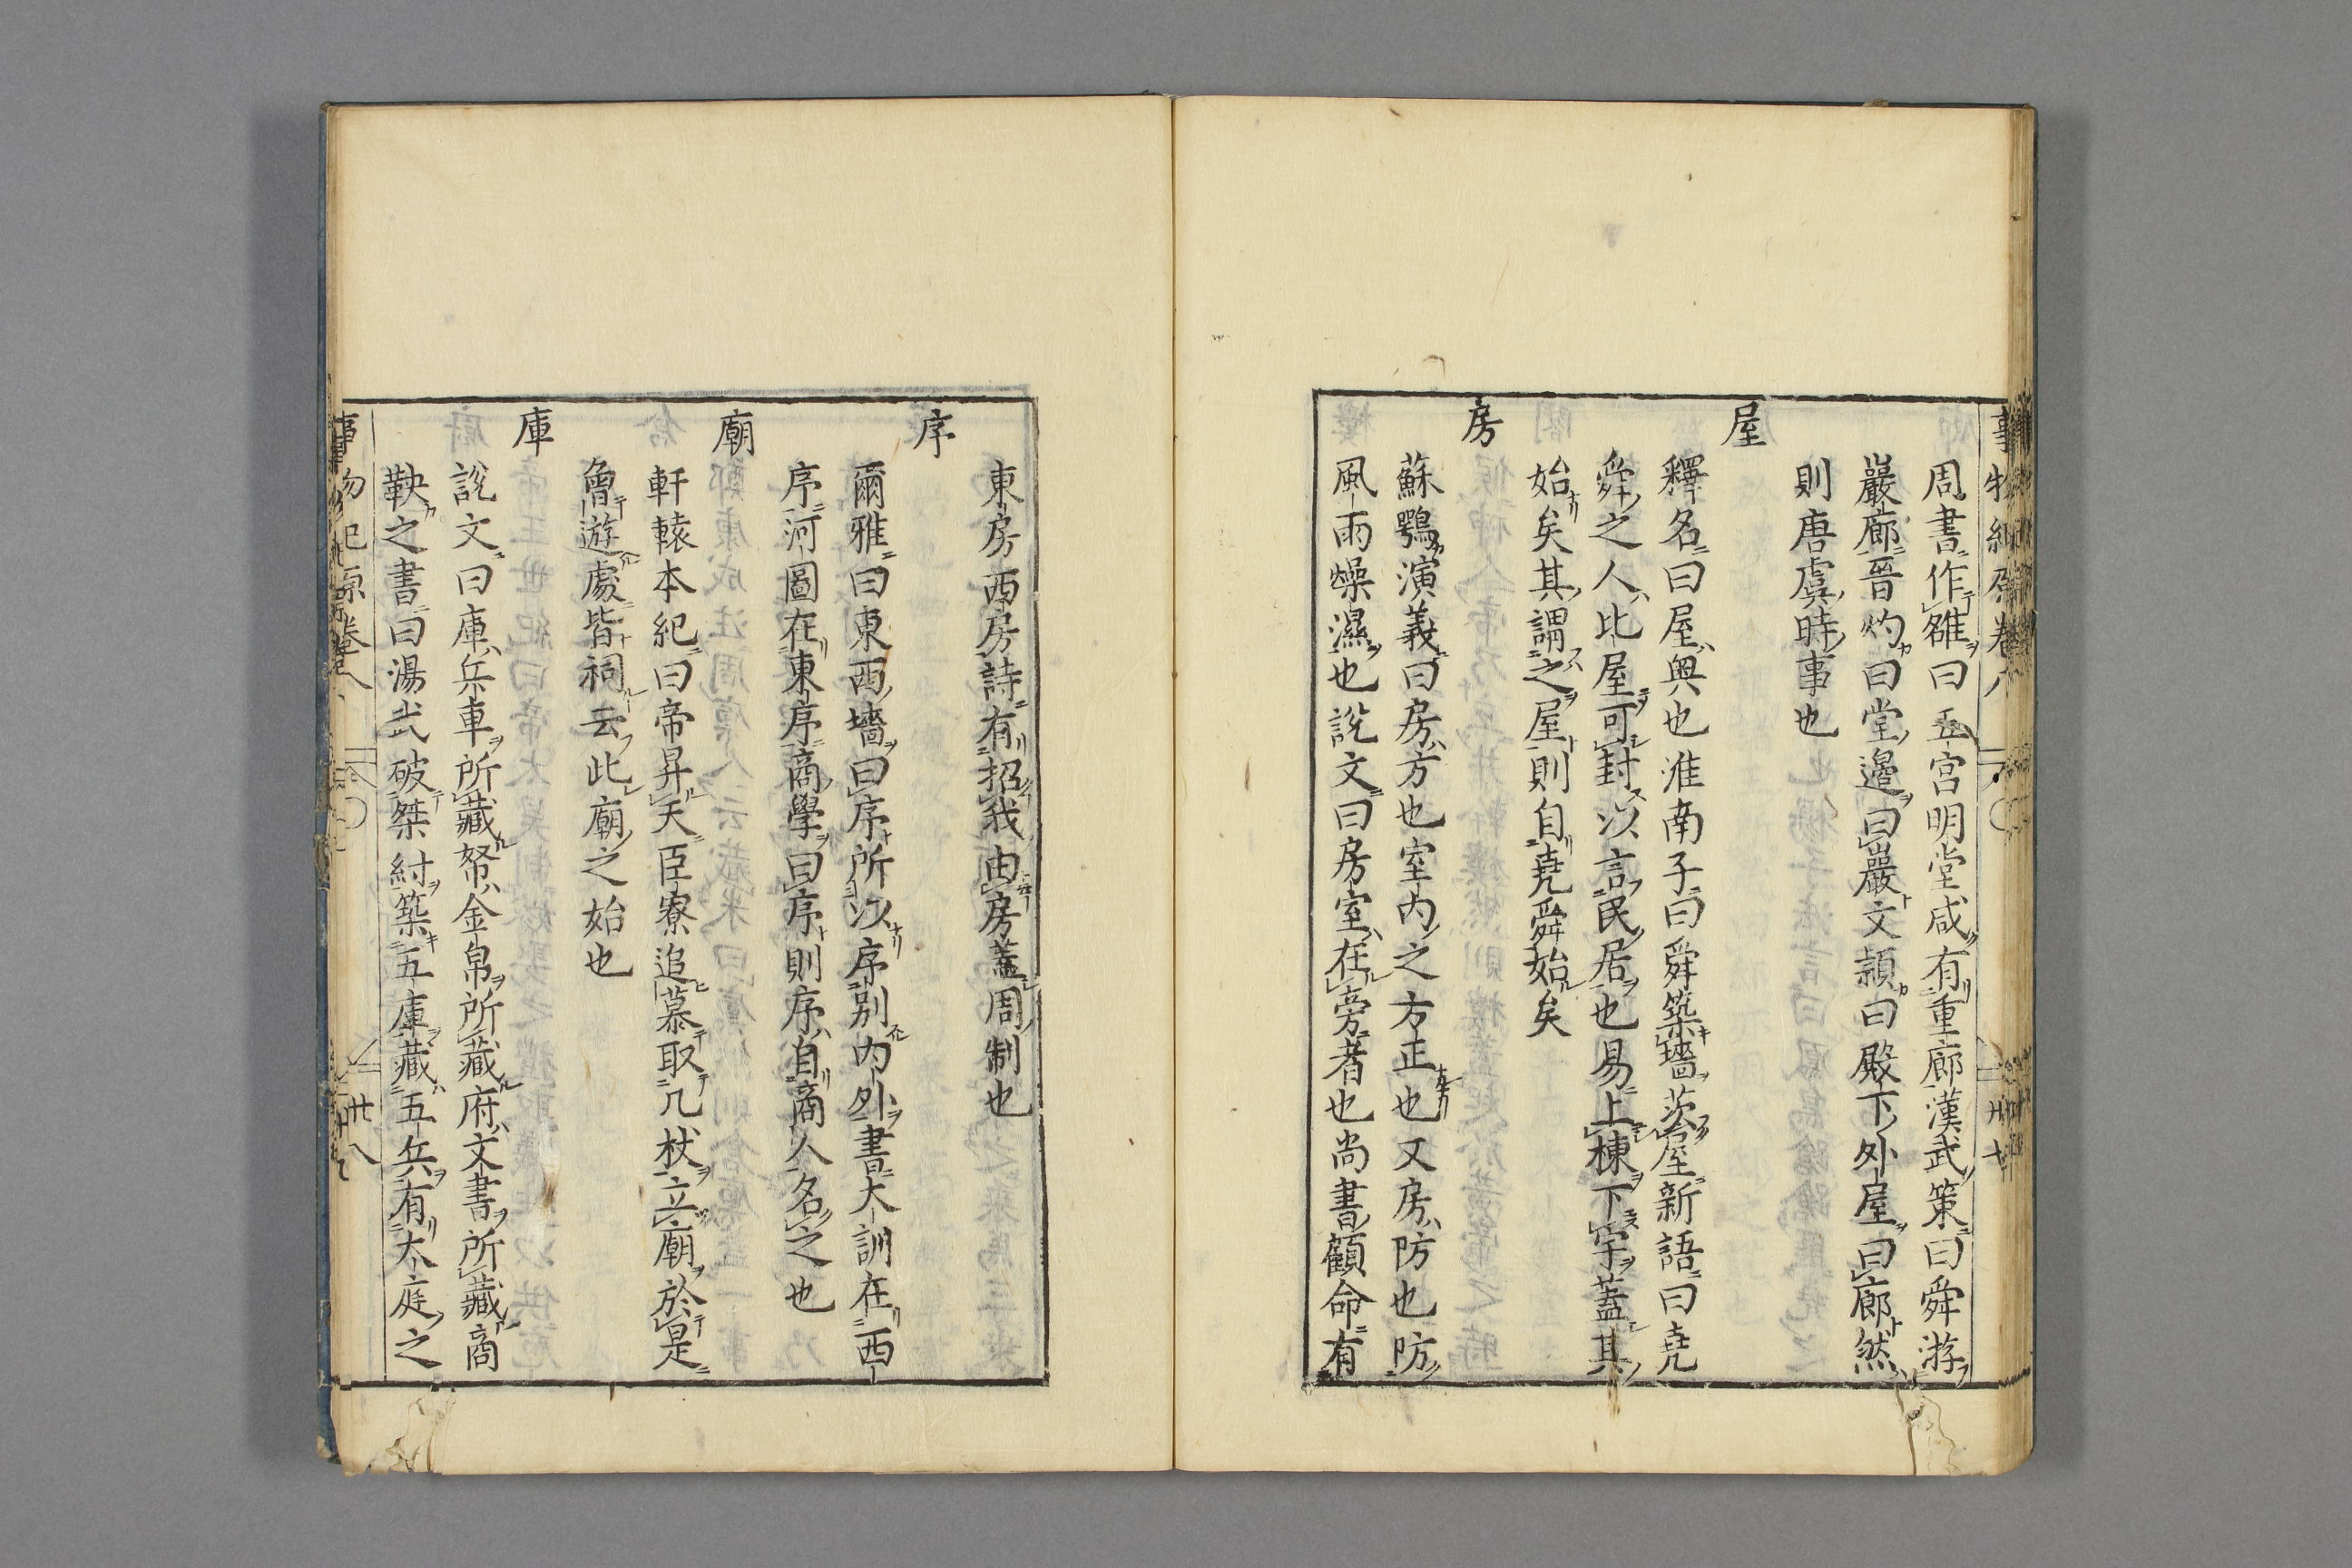 周書作雒曰五宮明堂咸有重廊漢武策曰舜游
巖廊晉灼曰堂邊曰巖文頴曰殿下外屋曰廊然
則唐虞時事也
屋
釋名曰屋奧也淮南子曰舜築墻茨屋新語曰堯
舜之人比屋可封以言民居也易上棟下宇蓋其
始矣其謂之屋則自堯舜始矣
房
蘇鶚演義曰房方也室內之方正也又房防也防
風雨燥濕也說文曰房室在旁者也尚書顧命有
東房西房詩有招我由房蓋周制也
序
爾雅曰東西墻曰序所以序別內外書大訓在西
序河圖在東序商學曰序則序自商人名之也
廟
軒轅本紀曰帝昇天臣寮追慕取几杖立廟於是
曾遊處皆祠云此廟之始也
庫
說文曰庫兵車所藏帑金帛所藏府文書所藏商
鞅之書曰湯武破桀紂築五庫藏五兵有大庭之